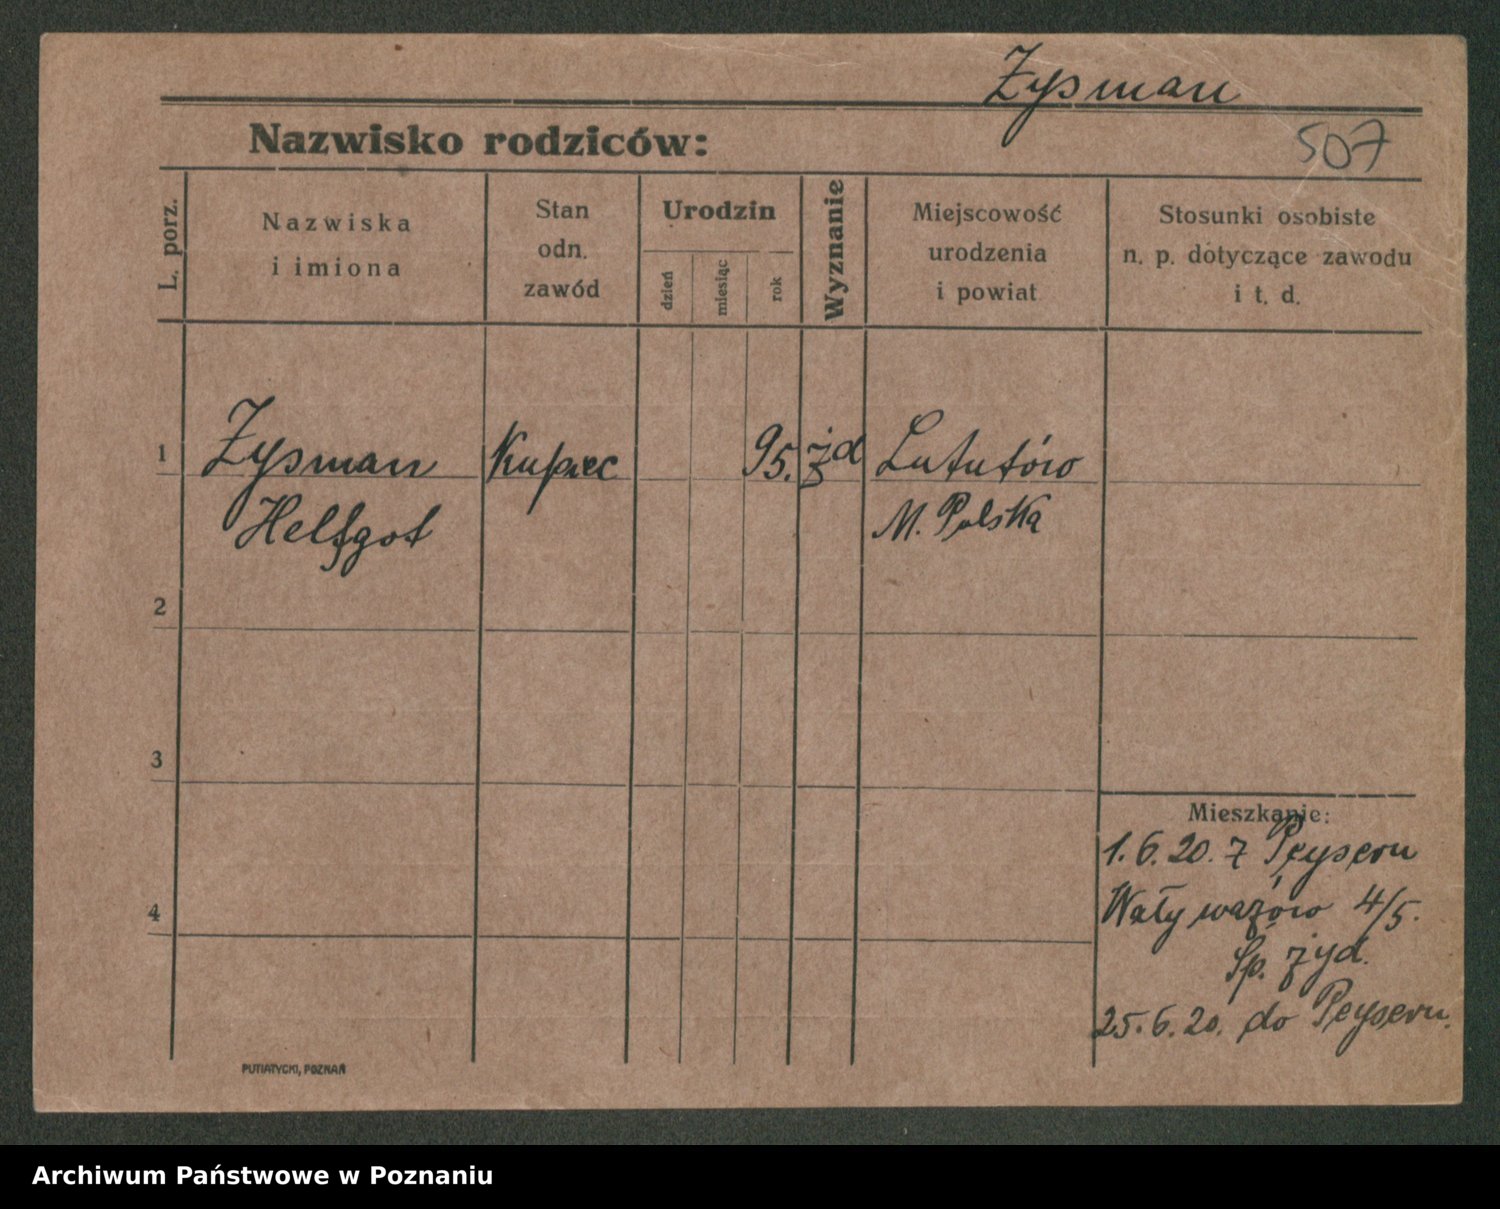 Zysman
507
Nazwisko rodziców:
L. porz.
Nazwiska
i imiona
Stan
odn.
zawód
Urodzin
dzień
miesiąc
rok
Wyznanie
Miejscowość
urodzenia
i powiat
Stosunki osobiste
n. p. dotyczące zawodu
i t. d.
1
Zysman
Helfgot
Kupiec
95.
żd
Lututów
M. Polska
2
3
4
Mieszkanie:
1.6.20. z Peysern
Wały wazów 4/5.
Sp. żyd.
25.6.20. do Peysern.
PUTIATYCKI, POZNAŃ
Archiwum Państwowe w Poznaniu